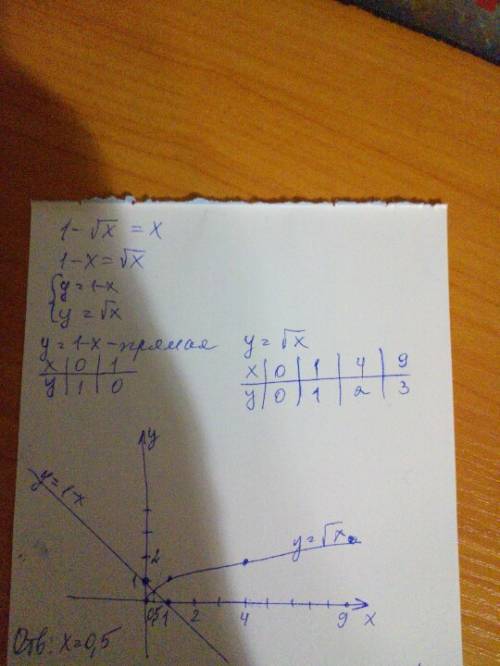 1-√x = x
1-x=√x
{y=1-x
{y=√x
y=1-x-прямая
x | 0 | 1
y | 1 | 0
y=√x
x | 0 | 1 | 4 | 9
y | 0 | 1 | 2 | 3
y
y=1-x
y=√x
2
1
0,5 1 2 4 9 x
Отв: x=0,5